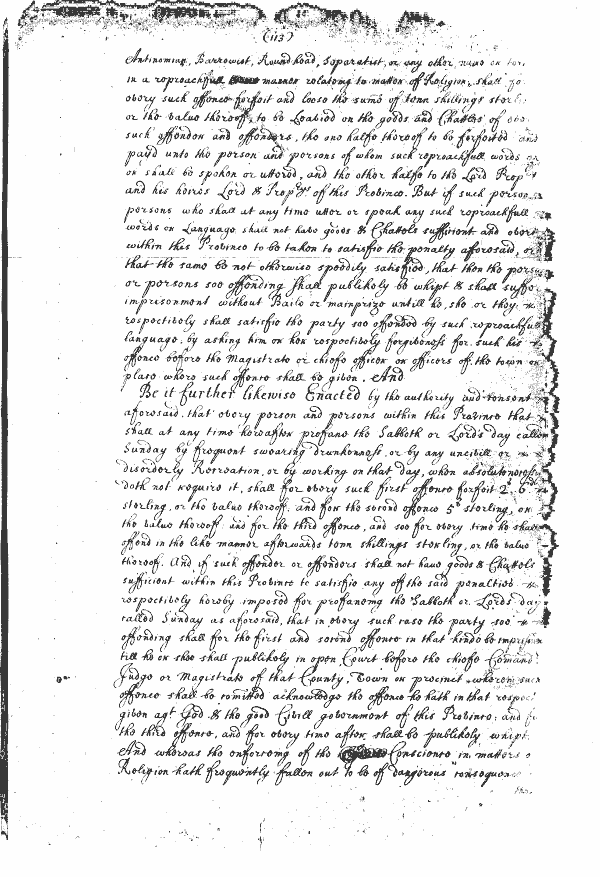 (113)
Antinomian, Barrowist, Roundhead, Separatist, or any other name or
in a reproachfull manner relateing to matter of Religion, shall for
every such offence forfeit and loose the sume of tenn shillings sterl
or the value thereof, to be Leavied on the goods and Chattles of
such offendor and offendors, the one halfe thereof to be forfeited and
payd unto the person and persons of whom such reproachfull words
or shall be spoken or uttered, and the other halfe to the Lord Propr
and his heires Lord & Proprs of this Province. But if such person
persons who shall at any time utter or speak any such reproachfull
words or Language shall not have goods & Chattels sufficient and overt
within this Province to be taken to satisfie the penalty aforesaid, or
that the same be not otherwise speedily satisfied, that then the person
or persons soe offending shall publickly be whipt & shall suffer
imprisonment without Baile or mainprize untill he, she or they
respectively shall satisfie the party soe offended by such reproachfull
language, by asking him or her respectively forgiveness for such his
offence before the Magistrate or chiefe officer or officers of the town or
place where such offence shall be given. And
Be it further likewise Enacted by the authority and consent
aforesaid, that every person and persons within this Province that
shall at any time hereafter profane the Sabboth or Lords day called
Sunday by frequent swearing drunkenness, or by any uncivill or
disorderly Recreation, or by working on that day, when absolute necessity
doth not require it, shall for every such first offence forfeit 2s 6d
sterling, or the value thereof, and for the second offence 5s sterling, or
the value thereof and for the third offence, and soe for every time he shall
offend in the like manner afterwards tenn shillings sterling, or the value
thereof. And if such offender or offenders shall not have goods & Chattels
sufficient within this Province to satisfie any of the said penalties
respectively hereby imposed for profaneing the Sabboth or Lords day
called Sunday as aforesaid, that in every such case the party soe
offending shall for the first and second offence in that kinde be imprison
till he or shee shall publickly in open Court before the chiefe Comand
Judge or Magistrate of that County, Town or precinct wherein such
offence shall be comitted acknowledge the offence he hath in that respect
given agt God & the good Civill government of this Province; and for
the third offence, and for every time after shall be publickly whipt
And whereas the enforceing of the Conscience in matters of
Religion hath frequently fallen out to be of dangerous consequence